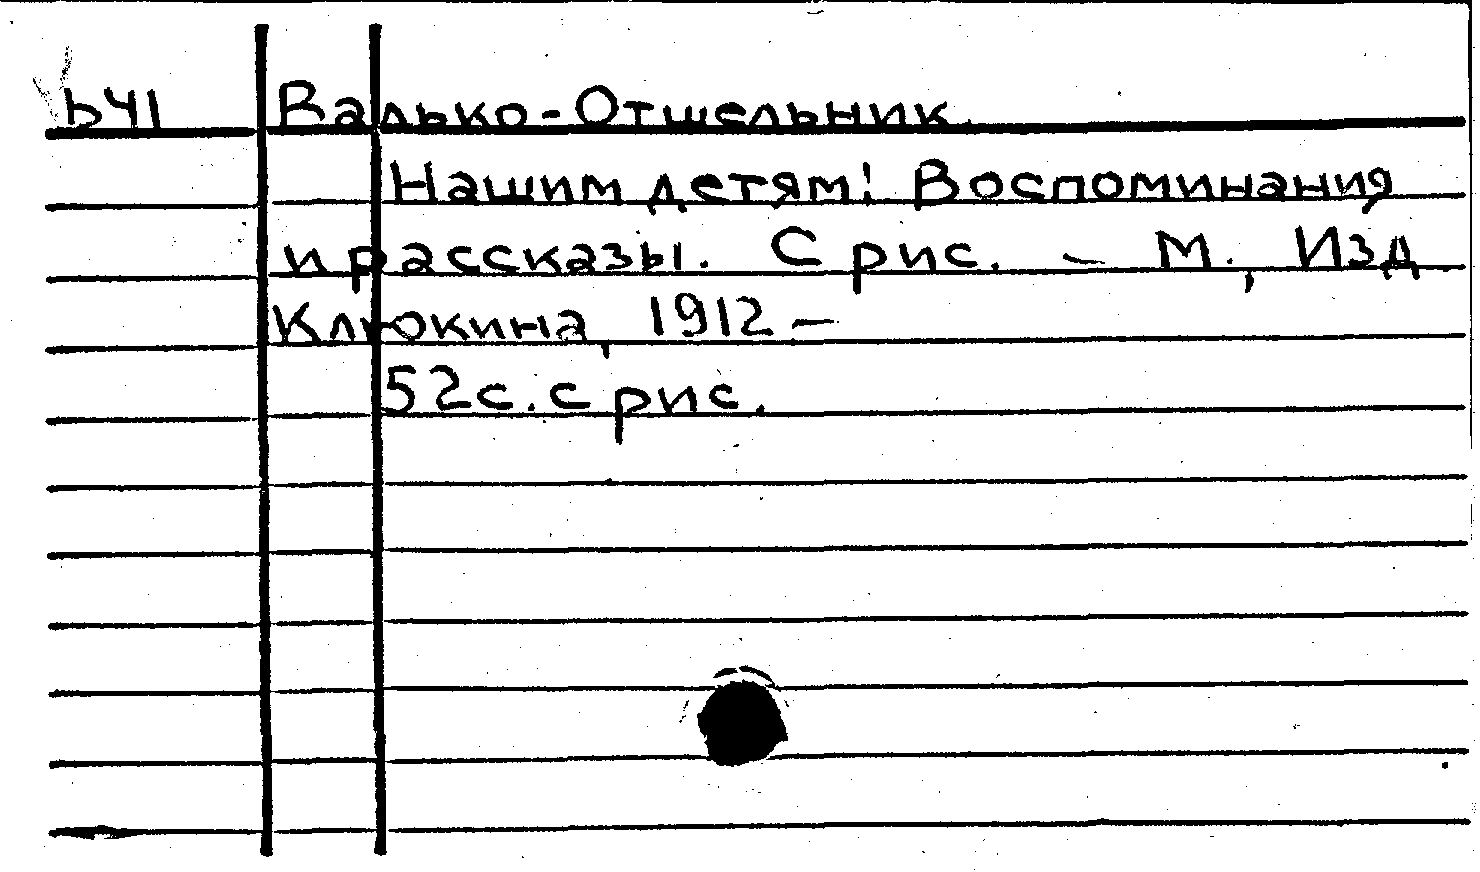 Ь41 Валько-Отшельник.
Нашим детям! Воспоминания
и рассказы. С рис. – М., Изд
Клюкина, 1912 –
52 с. с рис.